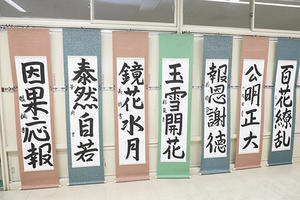 百花繚乱
公明正大
報恩謝徳
玉雪開花
鏡花水月
泰然自若
因果応報